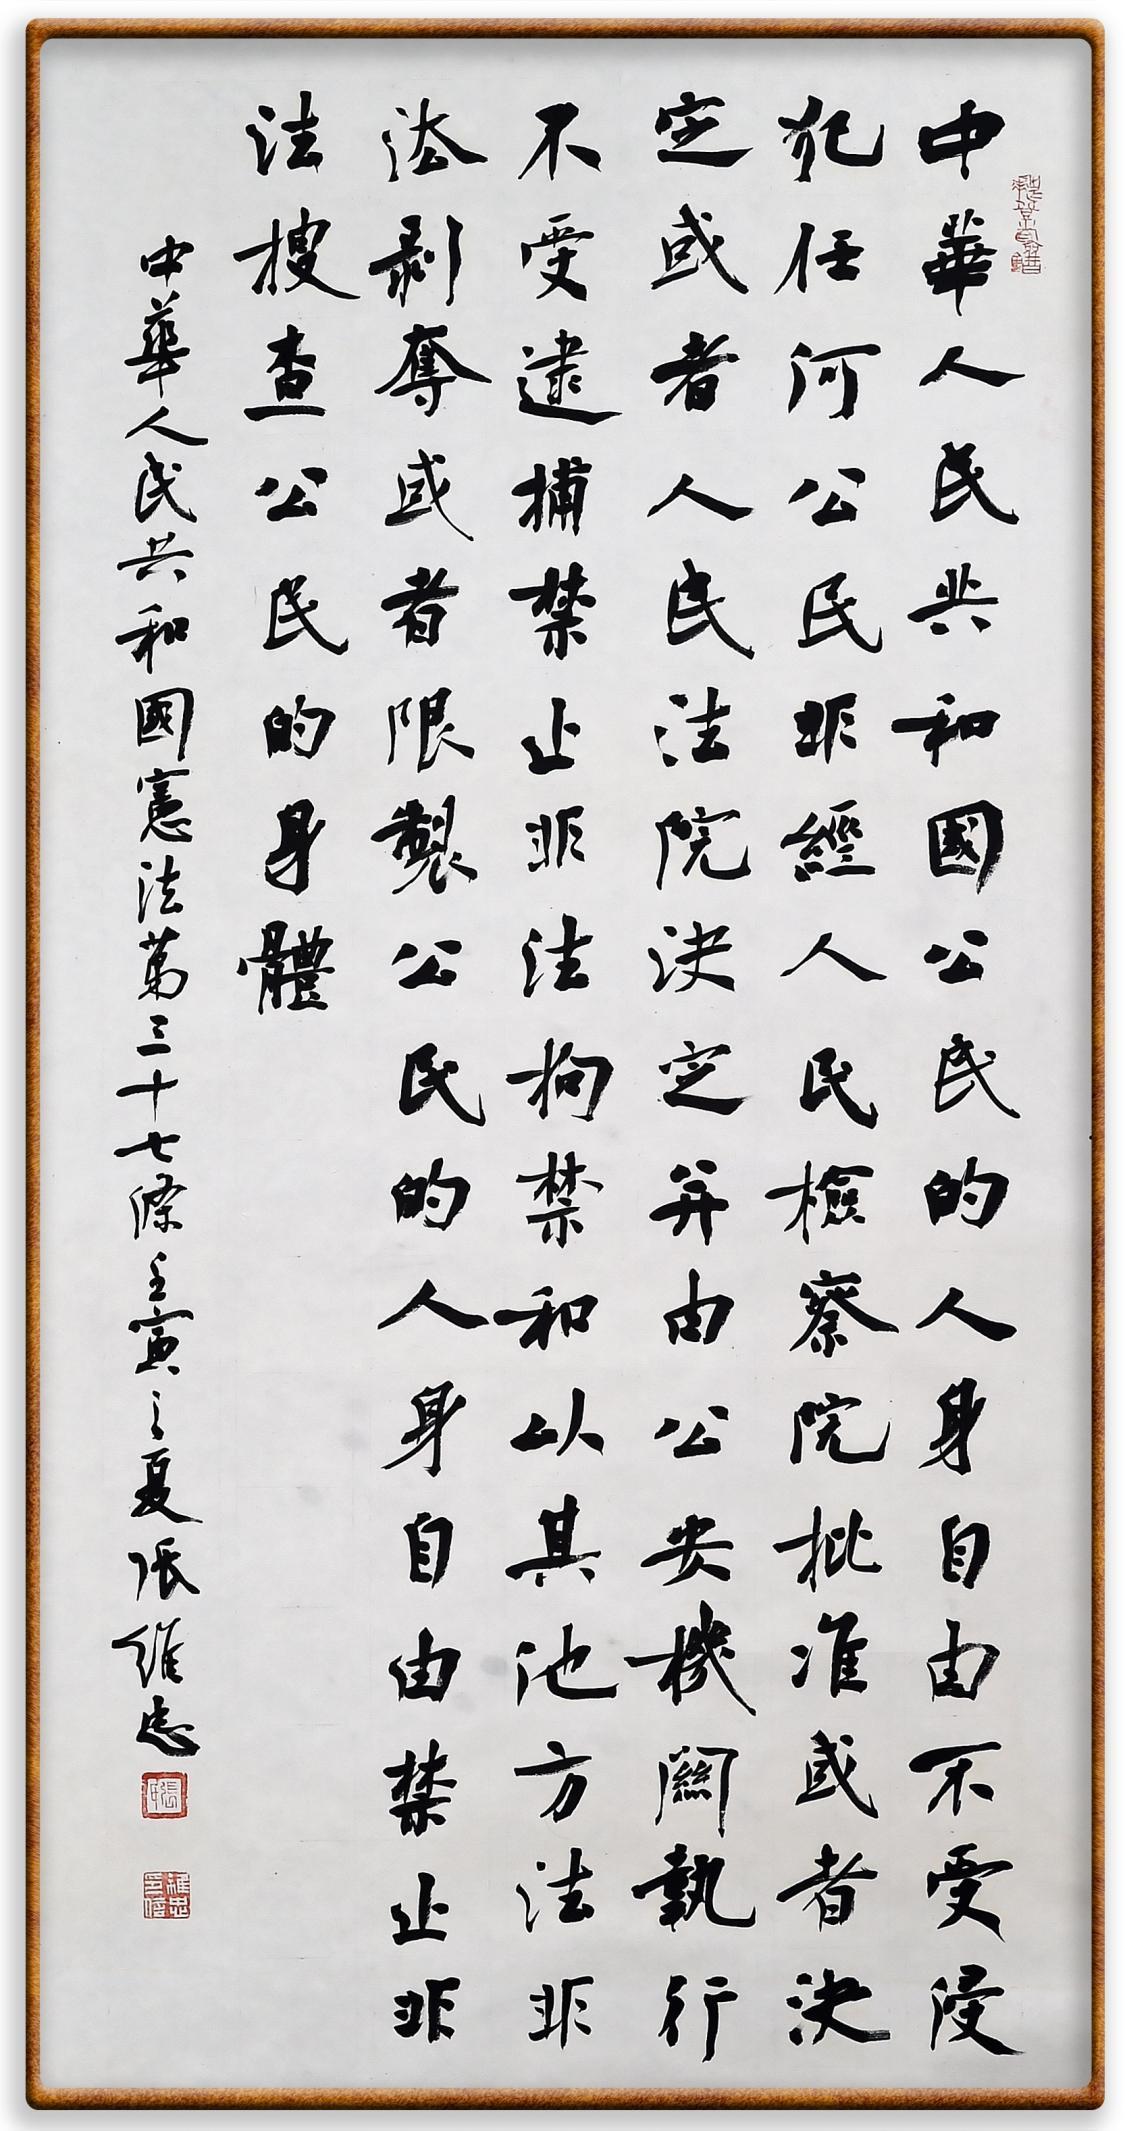 中華人民共和國公民的人身自由不受浸
犯任河公民非經人民檢察院批准或者決
定或者人民法院決定并由公安機關執行
不受逮捕禁止非法拘禁和以其池方法非
法剥奪或者限製公民的人身自由禁止非
法搜查公民的身體
中華人民共和國憲法第三十七條壬寅之夏張維忠
張氏
維忠印信